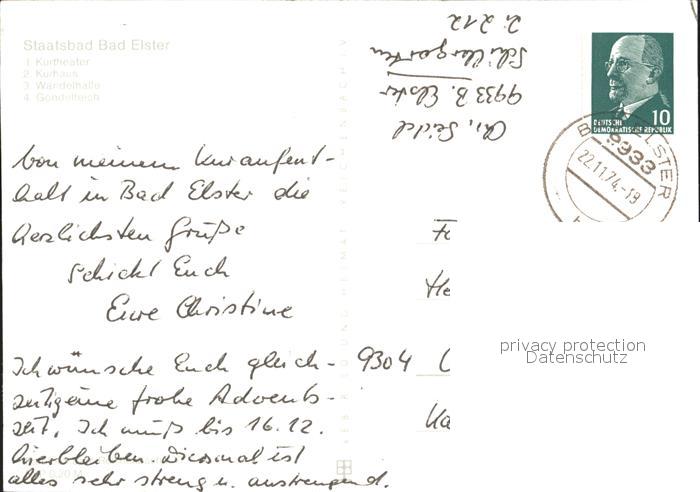 Staatsbad Bad Elster
1 Kurtheater
2. Kurhaus
3. Wandelhalle
4. Gondelteich
Von meinem Kuraufent-
halt in Bad Elster die
herzlichsten Grüße
schickt Euch
Eure Christine
Ich wünsche Euch gleich-
zeitig eine frohe Advents-
zeit. Ich muß bis 16.12.
hierbleiben. Diesmal ist
alles sehr streng u. anstrengend.
Chr. Seidel
9933 B. Elster
Schillergarten
Z: 212
10
DEUTSCHE
DEMOKRATISCHE REPUBLIK
ELSTER
9933
22.11.74.-19
He
9304
Ka
privacy protection
Datenschutz